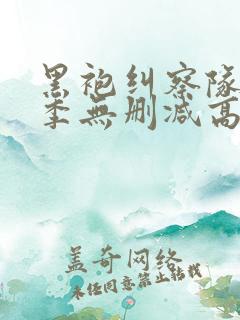 黑袍纠察队
季無删减高
蓋奇网络
未任同意禁止转载